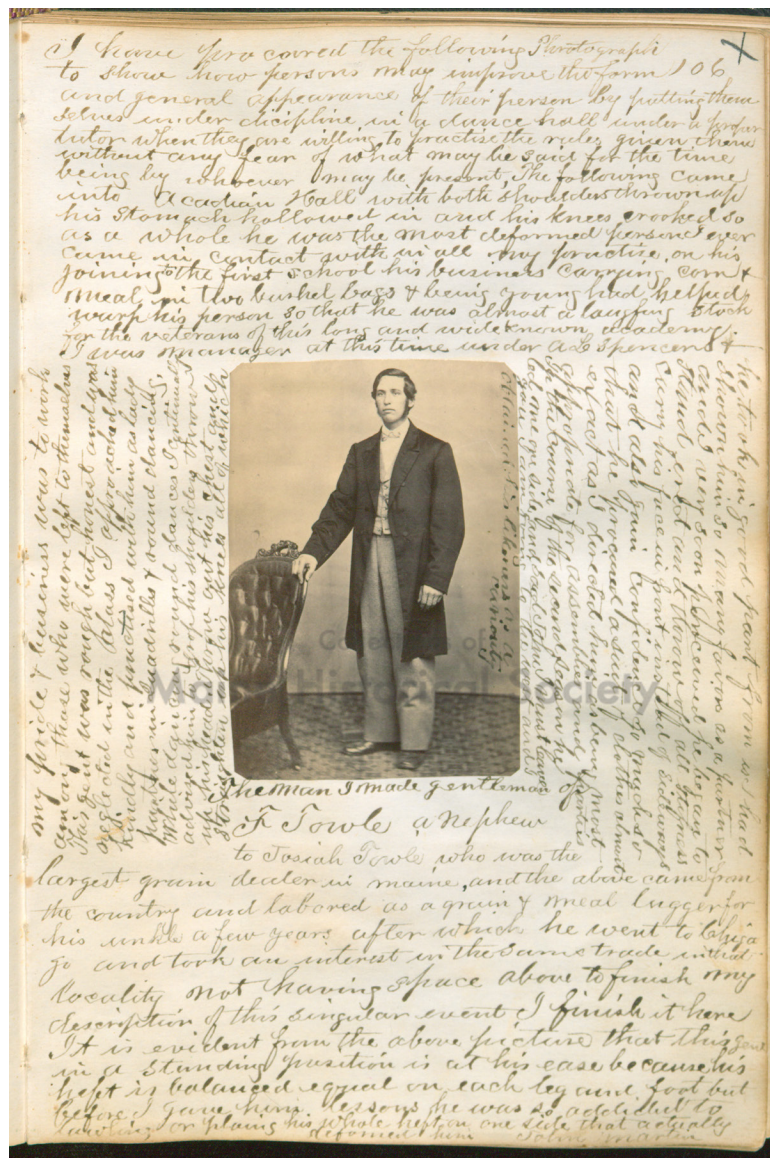 I have procoured the following Phrotographs
to show how persons may improve the form 106
and general appearance of their person by putting them
selves under dicipline in a dance hall under a proper
tutor when they are willing to practise the rules given them
without any fear of what may be said for the time
being by whoever may be present, The following came
into Acadian Hall with both shoulders thrown up
his stomach hollowed in and his knees crooked so
as a whole he was the most deformed person I ever
came in contact with in all my practise, on his
joining the first school his business carrying corn &
meal in two bushel bags & being young had helped
warp his person so that he was almost a laughing stock
for the veterans of this long and wide known academy.
I was manager at this time under A L Spencers &
my pride & business was to work
among those who were left to themselves
This gent was rough but honest and was
neglected in the class I approached him
kindly and practised with him as lady
partner in quadrills & round dancing,
While dancing round dances I continually
advised him to drop his shoulders throw
up his head throw out his chest and
straighten his knees all of which
he took in good part from who I had
shown him so many favors as a partner
and very soon perceived he began to
stand erect and throw off all stifness
carry his face in front instead of sidways
and also gain confidence so much so
that he procured a suit of clothes almost
exact as I directed him as being most
appropriate for assemblies and parties
In the course of the second season he
led me one side and said John Martin
obtained his likeness as a
curiosity
Collections of
Maine Historical Society
The man I made gentleman of
F Towle a Nephew
to Josiah Towle who was the
largest grain dealer in maine, and the above came from
the country and labored as a grain & meal lugger for
his unkle a few years after which he went to Chica
go and took an interest in the same trade in that
locality not having space above to finish my
description of this singular event I finish it here
It is evident from the above picture that this gent
in a standing position is at his ease because his
heft is balanced equal on each leg and foot but
before I gave him lessons he was so addicted to
or placing his whole heft on one side that actually
deformed him John Martin